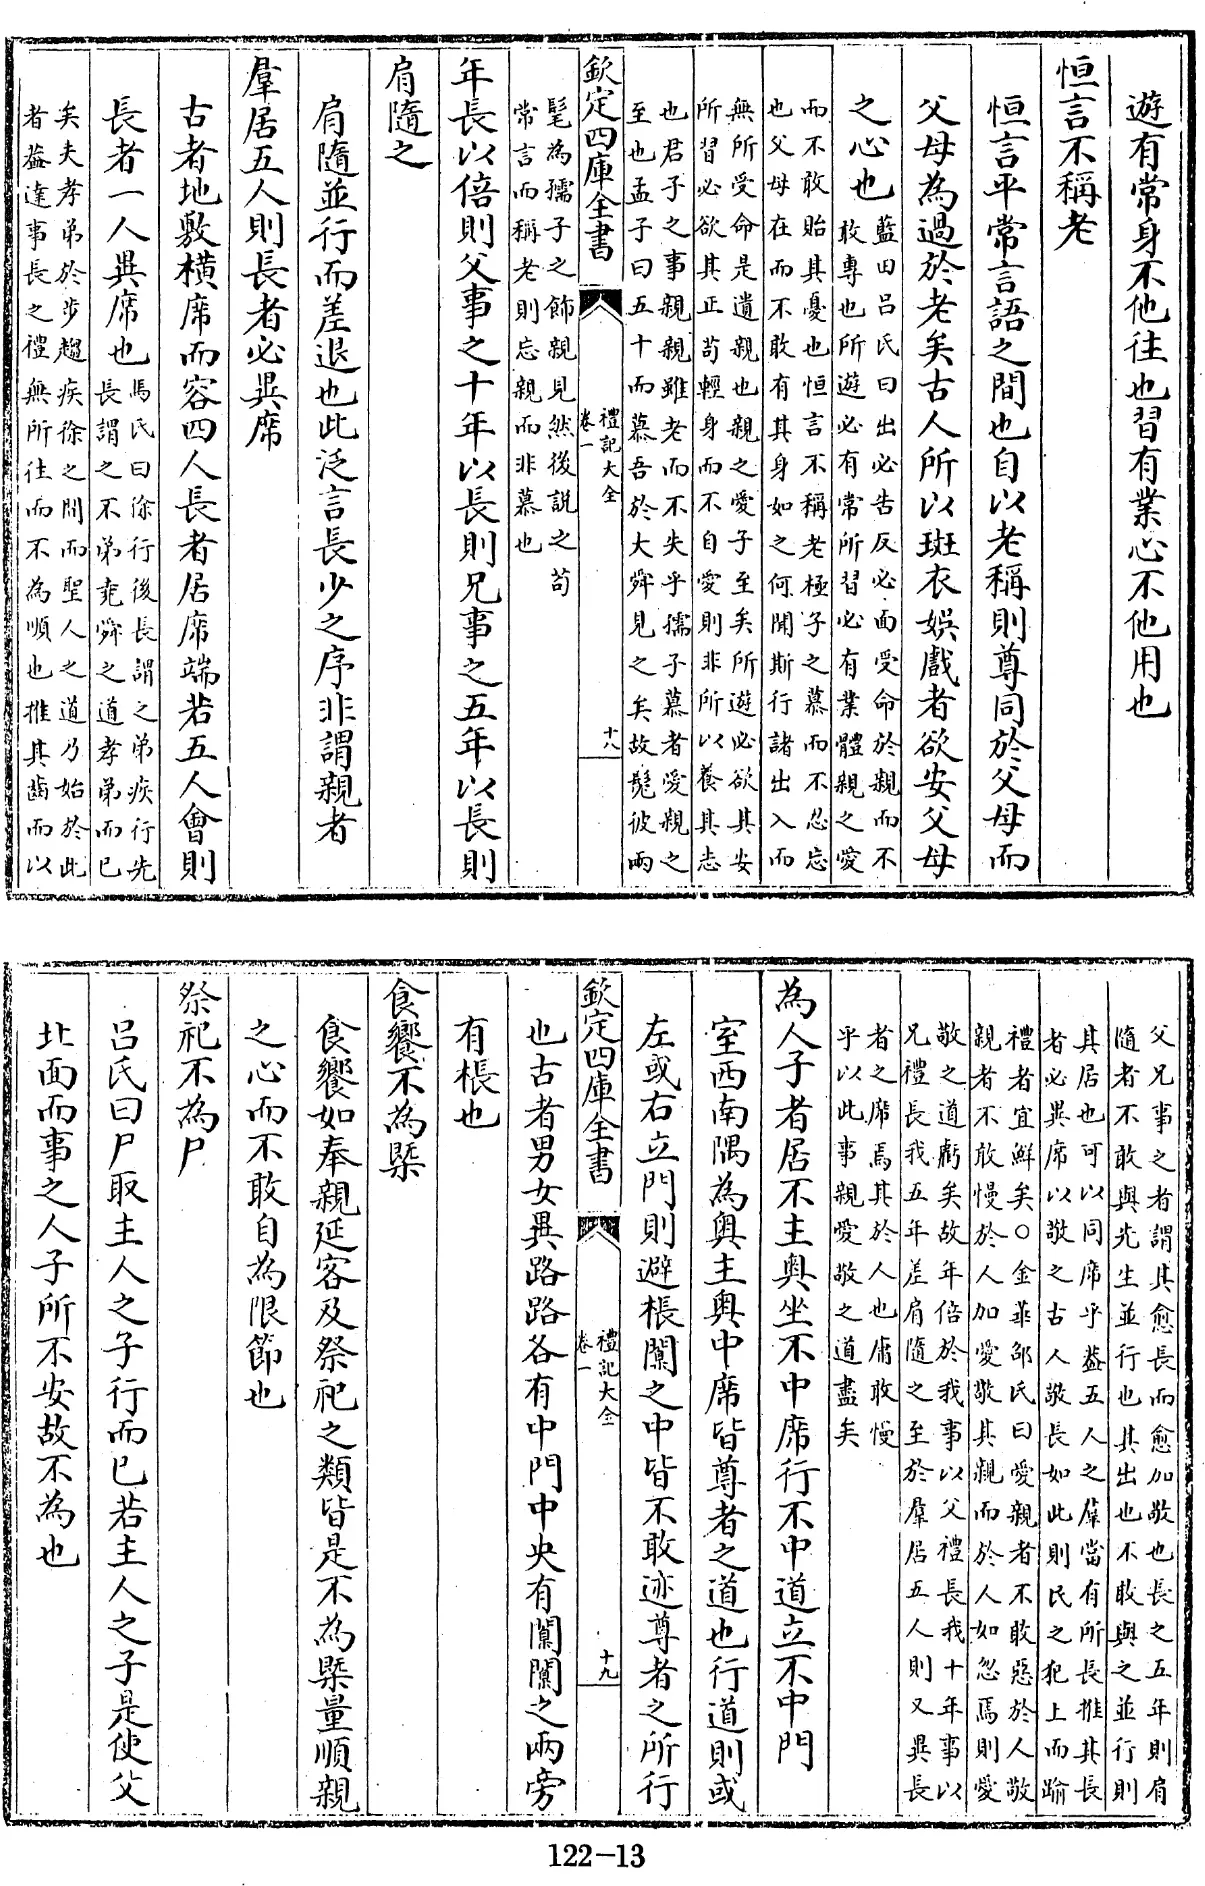 遊有常身不他往也習有業心不他用也
恒言不稱老
恒言平常言語之間也自以老稱則尊同於父母而
父母為過於老矣古人所以斑衣娛戲者欲安父母
之心也
藍田呂氏曰出必告反必面受命於親而不
敢專也所遊必有常所習必有業體親之愛
而不敢貽其憂也恒言不稱老極子之慕而不忍忘
也父母在而不敢有其身如之何聞斯行諸出入而
無所受命是遺親也親之愛子至矣所遊必欲其安
所習必欲其正苟輕身而不自愛則非所以養其志
也君子之事親親雖老而不失乎孺子慕者愛親之
至也孟子曰五十而慕吾於大舜見之矣故髧彼兩
欽定四庫全書
禮記大全
卷一
十八
髦為孺子之飾親見然後說之苟
常言而稱老則忘親而非慕也
年長以倍則父事之十年以長則兄事之五年以長則
肩隨之
肩隨並行而差退也此泛言長少之序非謂親者
羣居五人則長者必異席
古者地敷橫席而容四人長者居席端若五人會則
長者一人異席也
馬氏曰徐行後長謂之弟疾行先
長謂之不弟堯舜之道孝弟而已
矣夫孝弟於步趨疾徐之間而聖人之道乃始於此
者蓋達事長之禮無所往而不為順也推其齒而以
父兄事之者謂其愈長而愈加敬也長之五年則肩
隨者不敢與先生並行也其出也不敢與之並行則
其居也可以同席乎蓋五人之羣當有所長推其長
者必異席以敬之古人敬長如此則民之犯上而踰
禮者宜鮮矣○金華邵氏曰愛親者不敢惡於人敬
親者不敢慢於人加愛敬其親而於人如忽焉則愛
敬之道虧矣故年倍於我事以父禮長我十年事以
兄禮長我五年差肩隨之至於羣居五人則又異長
者之席焉其於人也庸敢慢
乎以此事親愛敬之道盡矣
為人子者居不主奧坐不中席行不中道立不中門
室西南隅為奧主奧中席皆尊者之道也行道則或
左或右立門則避棖闑之中皆不敢迹尊者之所行
欽定四庫全書
禮記大全
卷一
十九
也古者男女異路路各有中門中央有闑闑之兩旁
有棖也
食饗不為槩
食饗如奉親延客及祭祀之類皆是不為槩量順親
之心而不敢自為限節也
祭祀不為尸
呂氏曰尸取主人之子行而已若主人之子是使父
北面而事之人子所不安故不為也
122-13